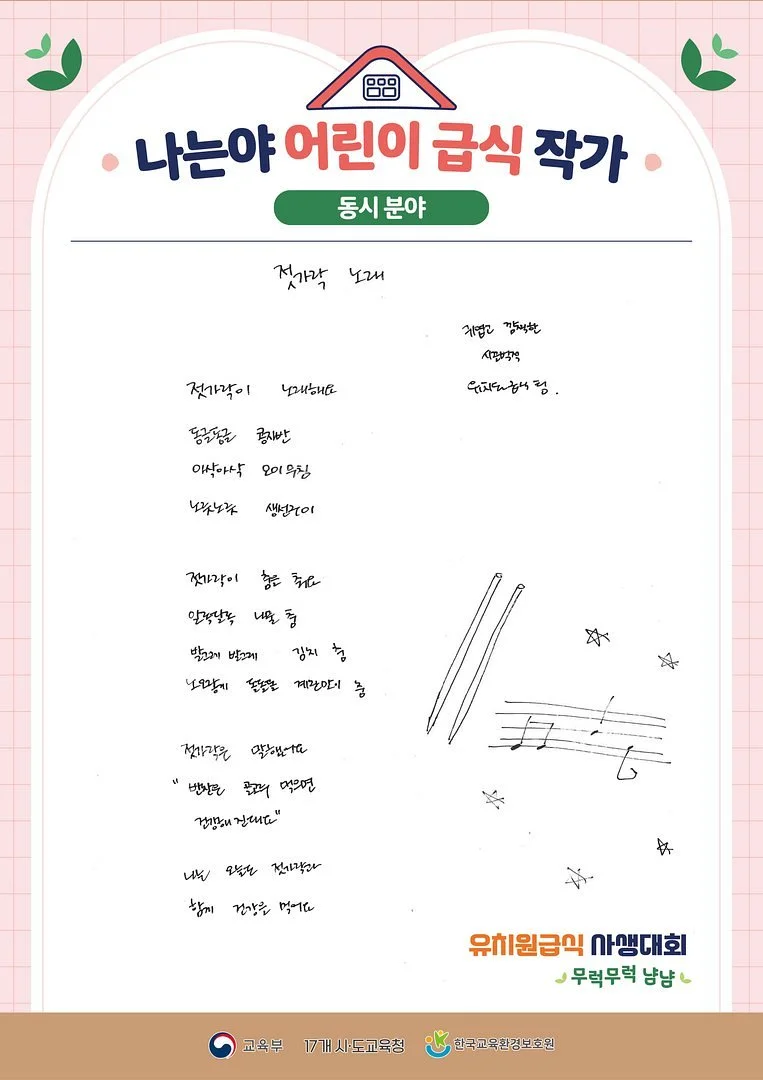 나는야 어린이 급식 작가
동시 분야
젓가락 노래
귀엽고 깜찍한
유치원급식 팀.
젓가락이 노래해요
동글동글 콩자반
아삭아삭 오이무침
노릇노릇 생선구이
젓가락이 춤을 춰요
알록달록 나물 춤
발그레 발그레 김치 춤
노오랗게 돌돌만 계란말이 춤
젓가락은 말했어요
"반찬을 골고루 먹으면
건강해진대요"
나는 오늘도 젓가락과
함께 건강을 먹어요
유치원급식 사생대회
무럭무럭 냠냠
교육부 17개 시·도교육청 한국교육환경보호원